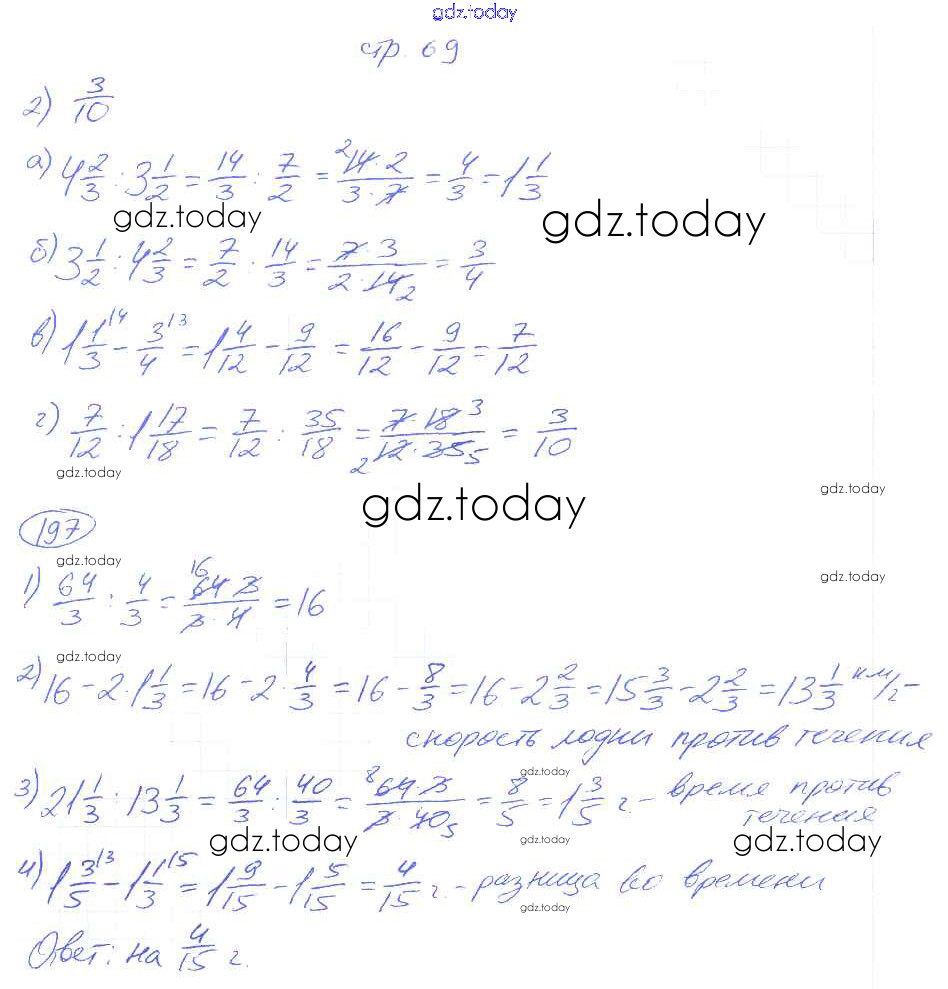 gdz.today
стр. 69
2) 3/10
а) 4 2/3 : 3 1/2 = 14/3 : 7/2 = 14·2/3·7 2 = 4/3 = 1 1/3
gdz.today gdz.today
б) 3 1/2 : 4 2/3 = 7/2 : 14/3 = 7·3/2·14 2 = 3/4
в) 1 1/3 \4 - 3/4 \3 = 1 4/12 - 9/12 = 16/12 - 9/12 = 7/12
г) 7/12 : 1 17/18 = 7/12 : 35/18 = 7·18 3/2 12·35 5 = 3/10
gdz.today gdz.today gdz.today
197
gdz.today gdz.today
1) 64/3 : 4/3 = 16 64·3/3·4 = 16
gdz.today
2) 16 - 2·1 1/3 = 16 - 2·4/3 = 16 - 8/3 = 16 - 2 2/3 = 15 3/3 - 2 2/3 = 13 1/3 км/г -
скорость лодни против течения
gdz.today
3) 21 1/3 : 13 1/3 = 64/3 : 40/3 = 8 64·3/3·40 5 = 8/5 = 1 3/5 г. - време против
течения
gdz.today gdz.today gdz.today
4) 1 3/5 \3 - 1 1/3 \5 = 1 9/15 - 1 5/15 = 4/15 г. - разница во времени
gdz.today
Ответ: на 4/15 г.